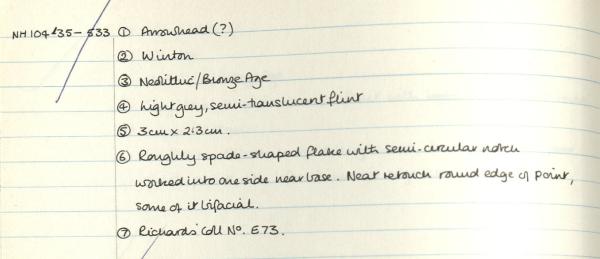 NH104/35-533 ① Arrowhead (?)
② Winton
③ Neolithic/Bronze Age
④ Light grey, semi-translucent flint
⑤ 3cm x 2.3cm.
⑥ Roughly spade-shaped flake with semi-circular notch
worked into one side near base. Neat retouch round edge of point,
some of it bifacial.
⑦ Richards' Coll No. E73.